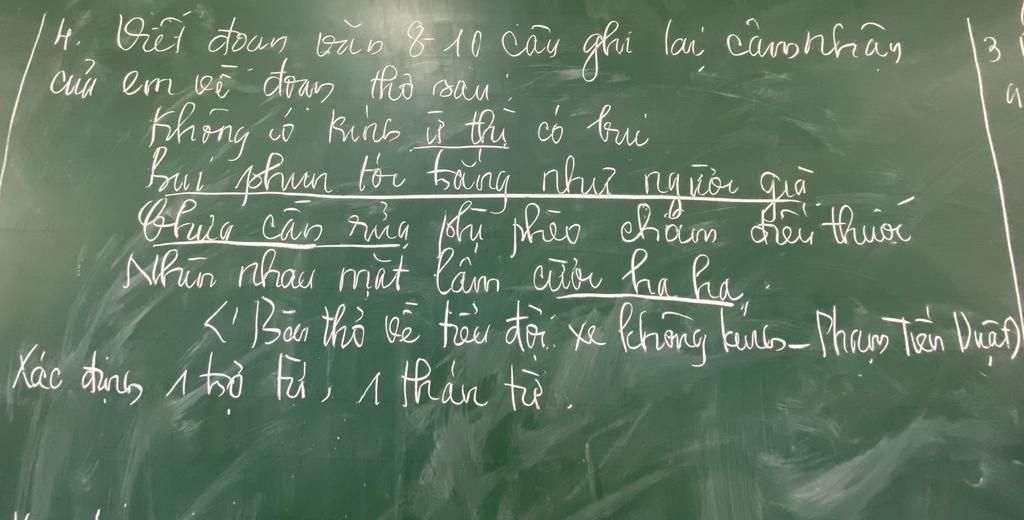 4. Viết đoạn văn 8-10 câu ghi lại cảm nhận
của em về đoạn thơ sau:
Không có kính ừ thì có bụi
Bụi phun tóc trắng như người già
Chưa cần rửa phì phèo châm điếu thuốc
Nhìn nhau mặt lấm cười ha ha
(Bài thơ về tiểu đội xe không kính - Phạm Tiến Duật)
Xác định 1 trợ từ, 1 thán từ.
3
a